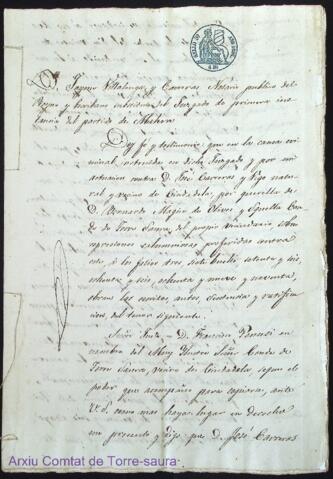 Dn. Jayme Villalonga y Carreras Notario publico del
Reyno y Escribano del Juzgado de primera ins
tancia del partido de Mahon
Doy fe y testimonio: que en la causa cri
minal, instruida en dicho Juzgado y por mi
actuacion contra D. José Carreras y Vigo natu
ral y vecino de Ciudadela, por querella de
D. Bernardo Magin de Olives y Squella Con
de de Torre Saura del propio vecindario sobre
espresiones calumniosas proferidas contra
este, á los folios dies siete setenta y seis,
ochenta y seis, ochenta y nueve y noventa,
obran los escritos autos sentencia y ratifica
cion, del tenor siguiente.
Señor Juez = D. Francisco en
nombre del Muy Ilustre Señor Conde de
Torre Saura, vecino de Ciudadela, segun el
poder que acompaño para copiarse, ante
V.S. como mas haya lugar en derecho
me presento y digo: que D. José Carreras
Arxiu Comtat de Torre-saura